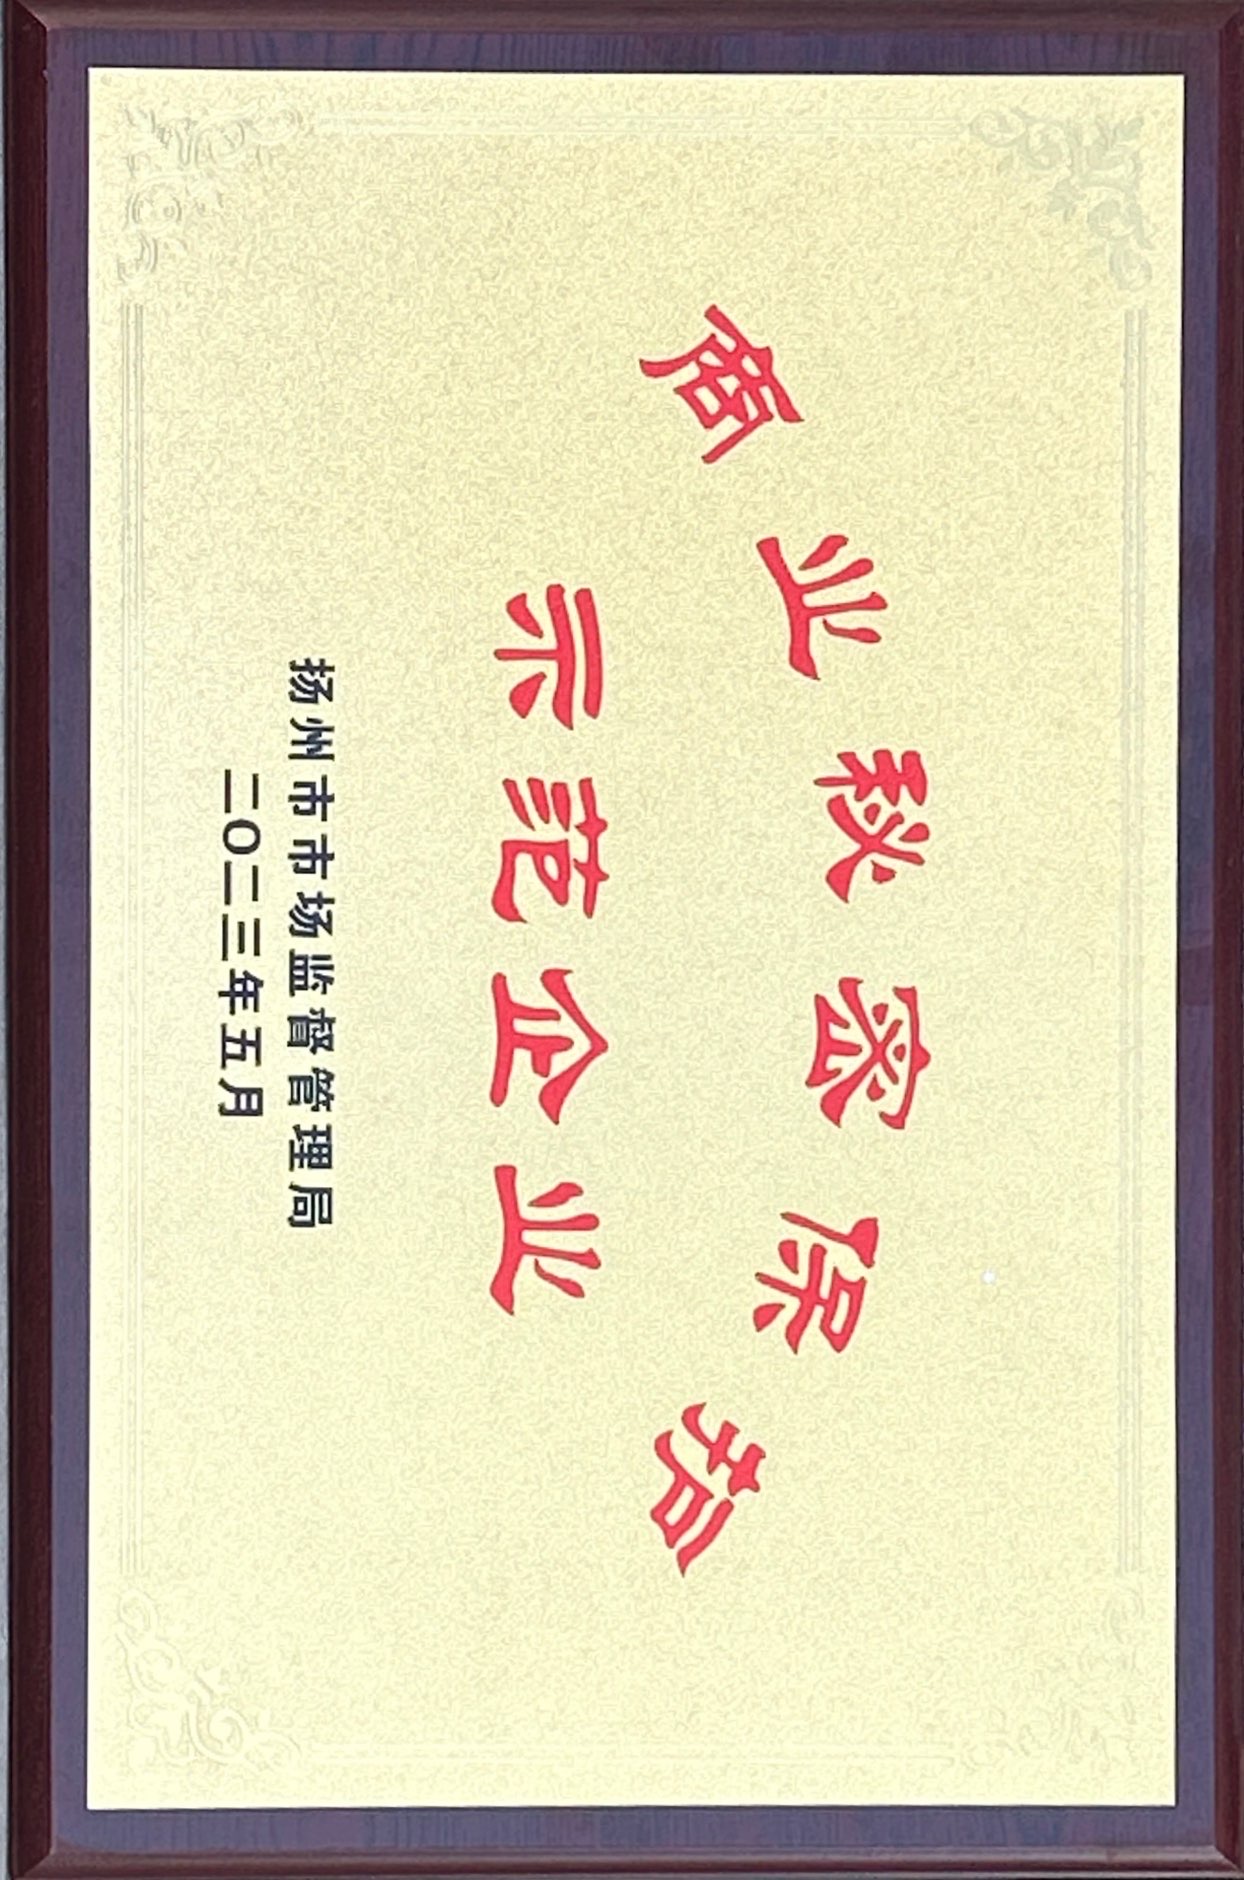 商业秘密保护
示范企业
扬州市市场监督管理局
二〇二三年五月